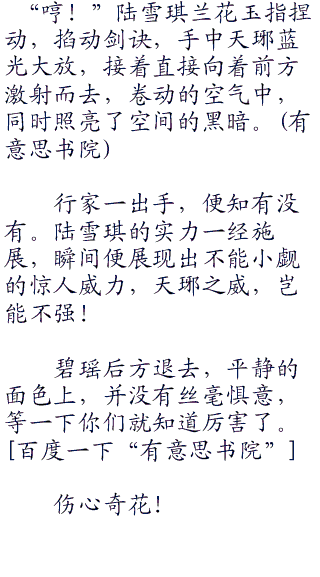 “哼！”陆雪琪兰花玉指捏
动，掐动剑诀，手中天琊蓝
光大放，接着直接向着前方
激射而去，卷动的空气中，
同时照亮了空间的黑暗。(有
意思书院)
行家一出手，便知有没
有。陆雪琪的实力一经施
展，瞬间便展现出不能小觑
的惊人威力，天琊之威，岂
能不强！
碧瑶后方退去，平静的
面色上，并没有丝毫惧意，
等一下你们就知道厉害了。
[百度一下“有意思书院”]
伤心奇花！